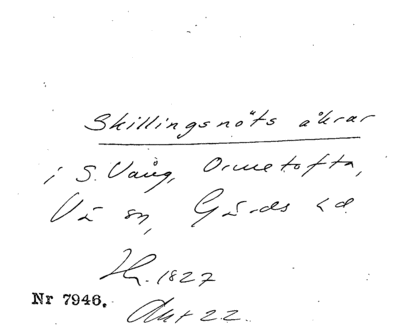 Skillingsnöts åkrar
i S. Vång, Ormetofta,
Vä sn, Gärds hd
1827
Nr 7946.
Akt 22